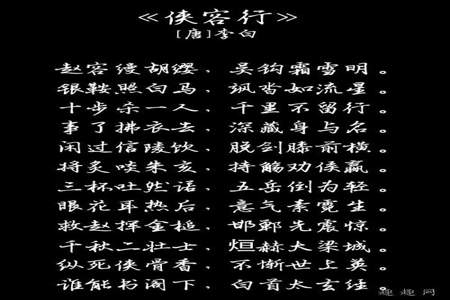 《侠客行》
[唐]李白
赵客缦胡缨，吴钩霜雪明。
银鞍照白马，飒沓如流星。
十步杀一人，千里不留行。
事了拂衣去，深藏身与名。
闲过信陵饮，脱剑膝前横。
将炙啖朱亥，持觞劝侯嬴。
三杯吐然诺，五岳倒为轻。
眼花耳热后，意气素霓生。
救赵挥金槌，邯郸先震惊。
千秋二壮士，烜赫大梁城。
纵死侠骨香，不惭世上英。
谁能书阁下，白首太玄经。
趣趣网